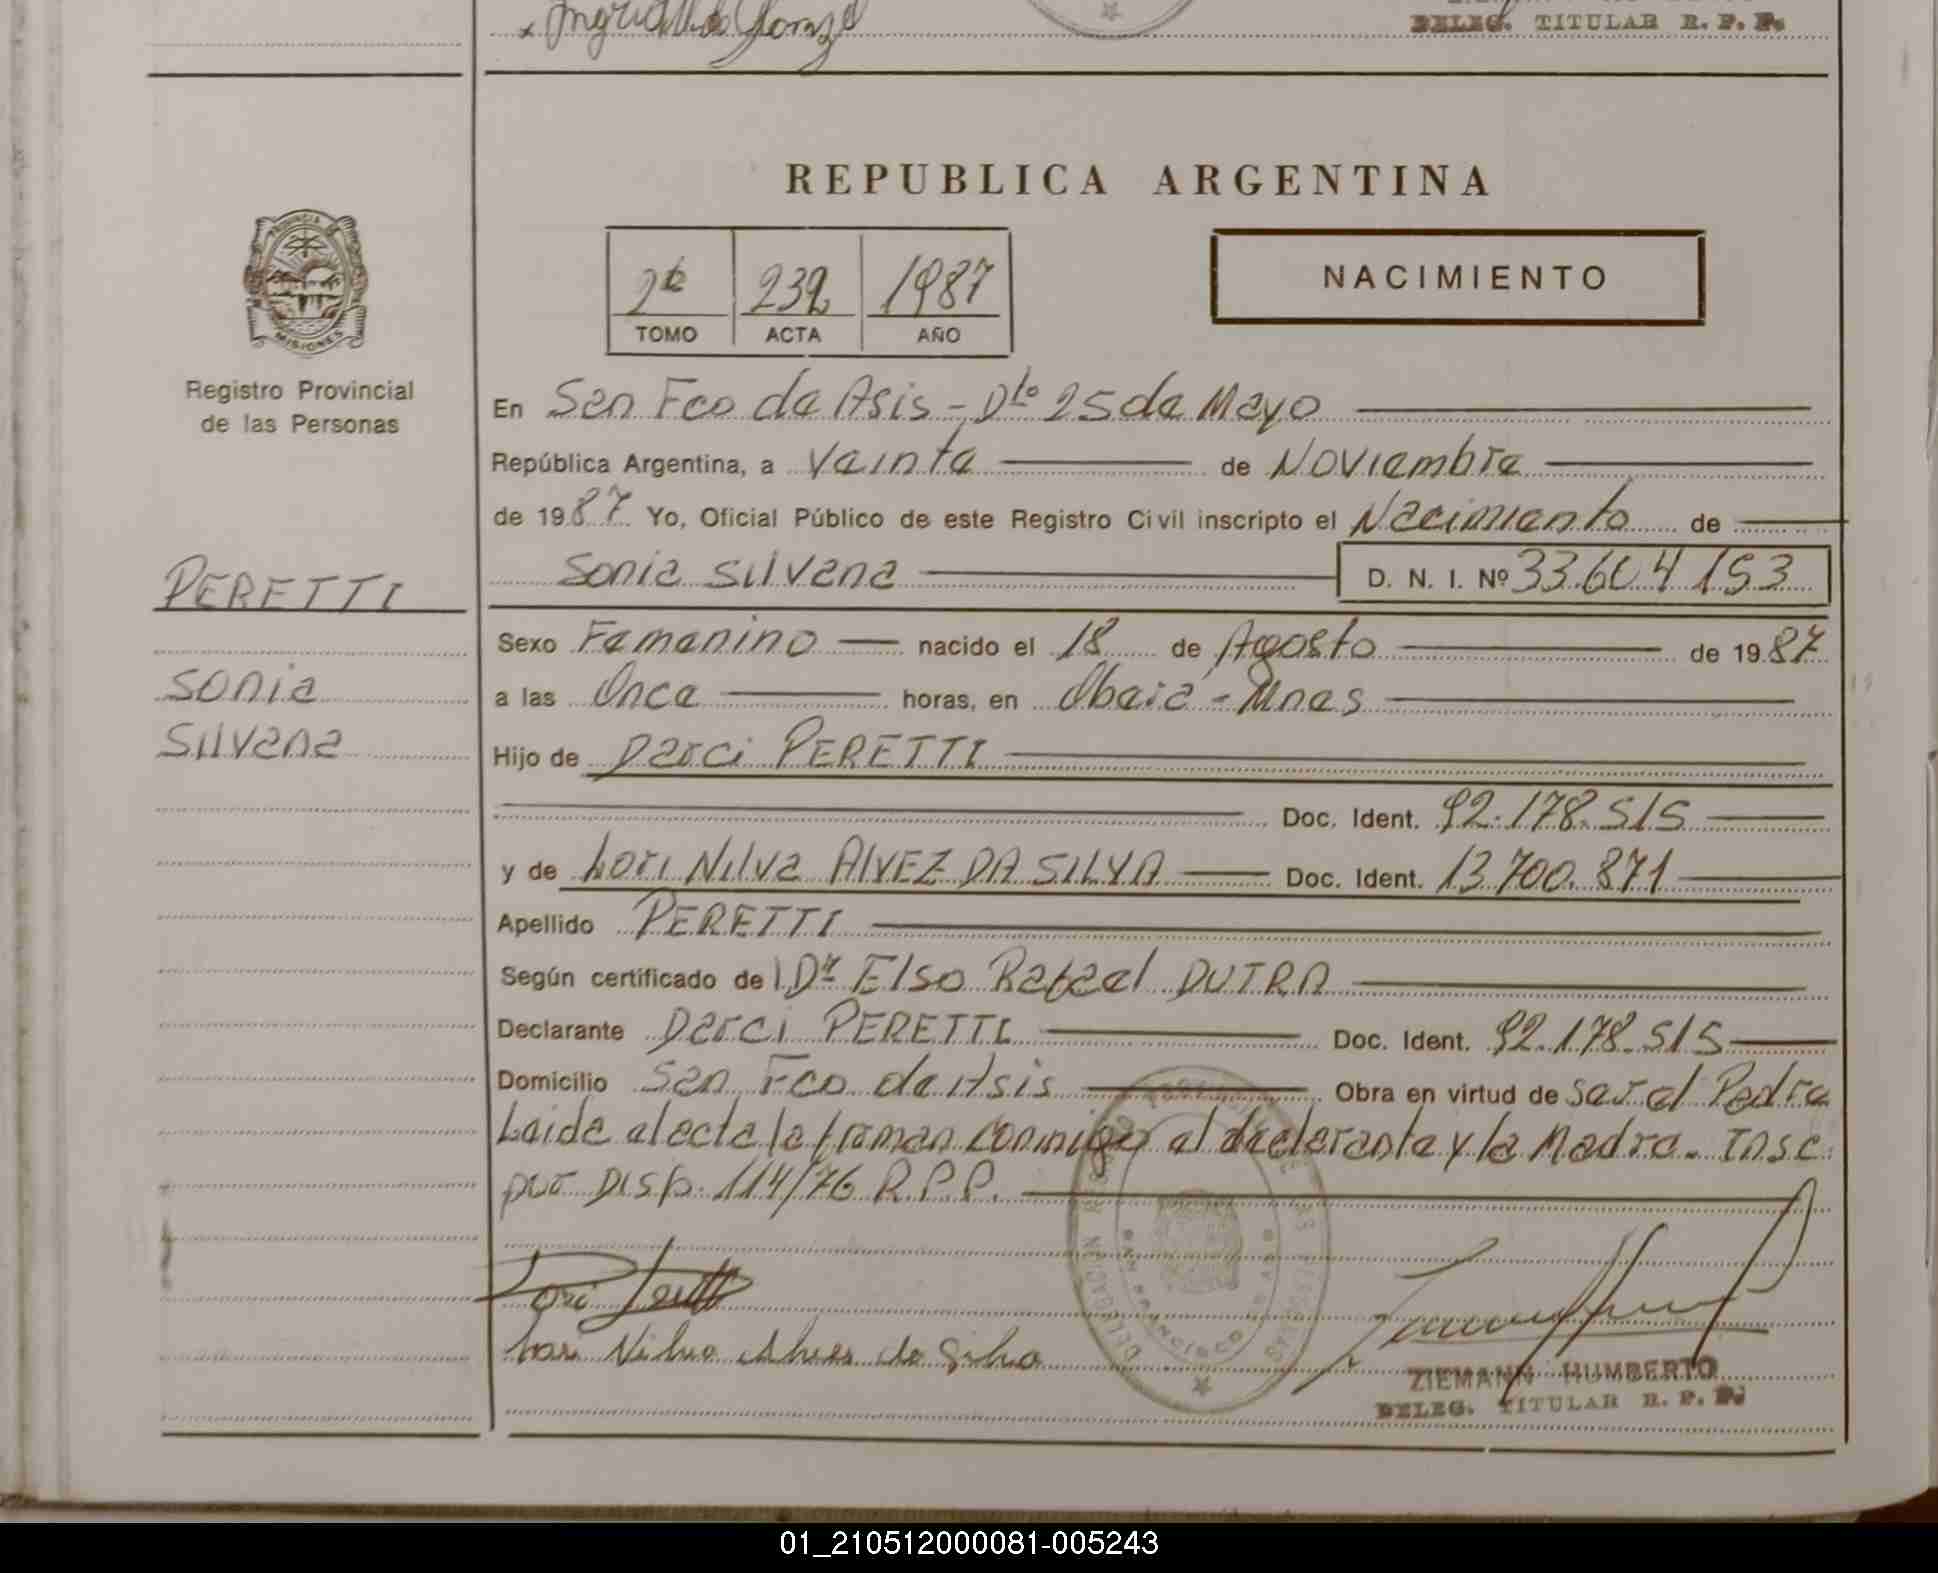 DELEG. TITULAR R. P. P.
REPUBLICA ARGENTINA
PROVINCIA DE
MISIONES
Registro Provincial
de las Personas
2do 232 1987
TOMO ACTA AÑO
NACIMIENTO
En San Fco de Asis - Dto 25 de Mayo
República Argentina, a Veinte de Noviembre
de 1987 Yo, Oficial Público de este Registro Civil inscripto el Nacimiento de
Sonia Silvana D. N. I. Nº 33.604.153
PERETTI
Sonia
Silvana
Sexo Femenino nacido el 18 de Agosto de 1987
a las Once horas, en Obera - Mnes
Hijo de Darci PERETTI
Doc. Ident. 92.178.515
y de Lori Nilva ALVEZ DA SILVA Doc. Ident. 13.700.871
Apellido PERETTI
Según certificado de Dr Elso Rafael DUTRA
Declarante Darci PERETTI Doc. Ident. 92.178.515
Domicilio San Fco de Asis Obra en virtud de ser el Padre
Leida el acta la firman conmigo el declarante y la Madre. Insc.
por Disp. 114/76 R.P.P.
Lori Nilva Alves da Silva
ZIEMANN HUMBERTO
DELEG. TITULAR R. P. P.
01_210512000081-005243